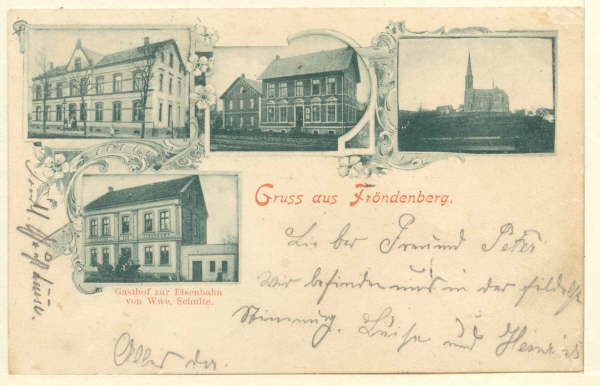 Gruss aus Fröndenberg.
Gasthof zur Eisenbahn
von Wwe. Schulte.
Lieber Freund Peter
Wir befinden uns in der
Stimmung. Luise und Heinrich
Alles da.